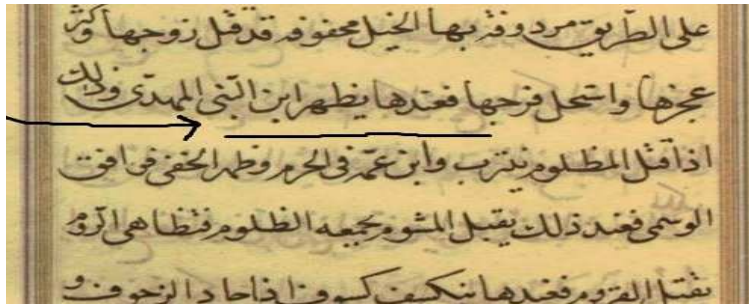 على الطريق مردوفة بها الخيل محفوفة قد قتل زوجها وكثر
عجزها واستحل فرجها فعندها يظهر ابن النبى المهدى وذلك
اذا قتل المظلوم بيثرب وابن عمه فى الحرم وظهر الخفى فى افق
الوسمى فعند ذلك يقبل المشوم بجمعه الظلوم فتظاهى الروم
فعندها ينكسف كسوف اذا جاد الزحوف و